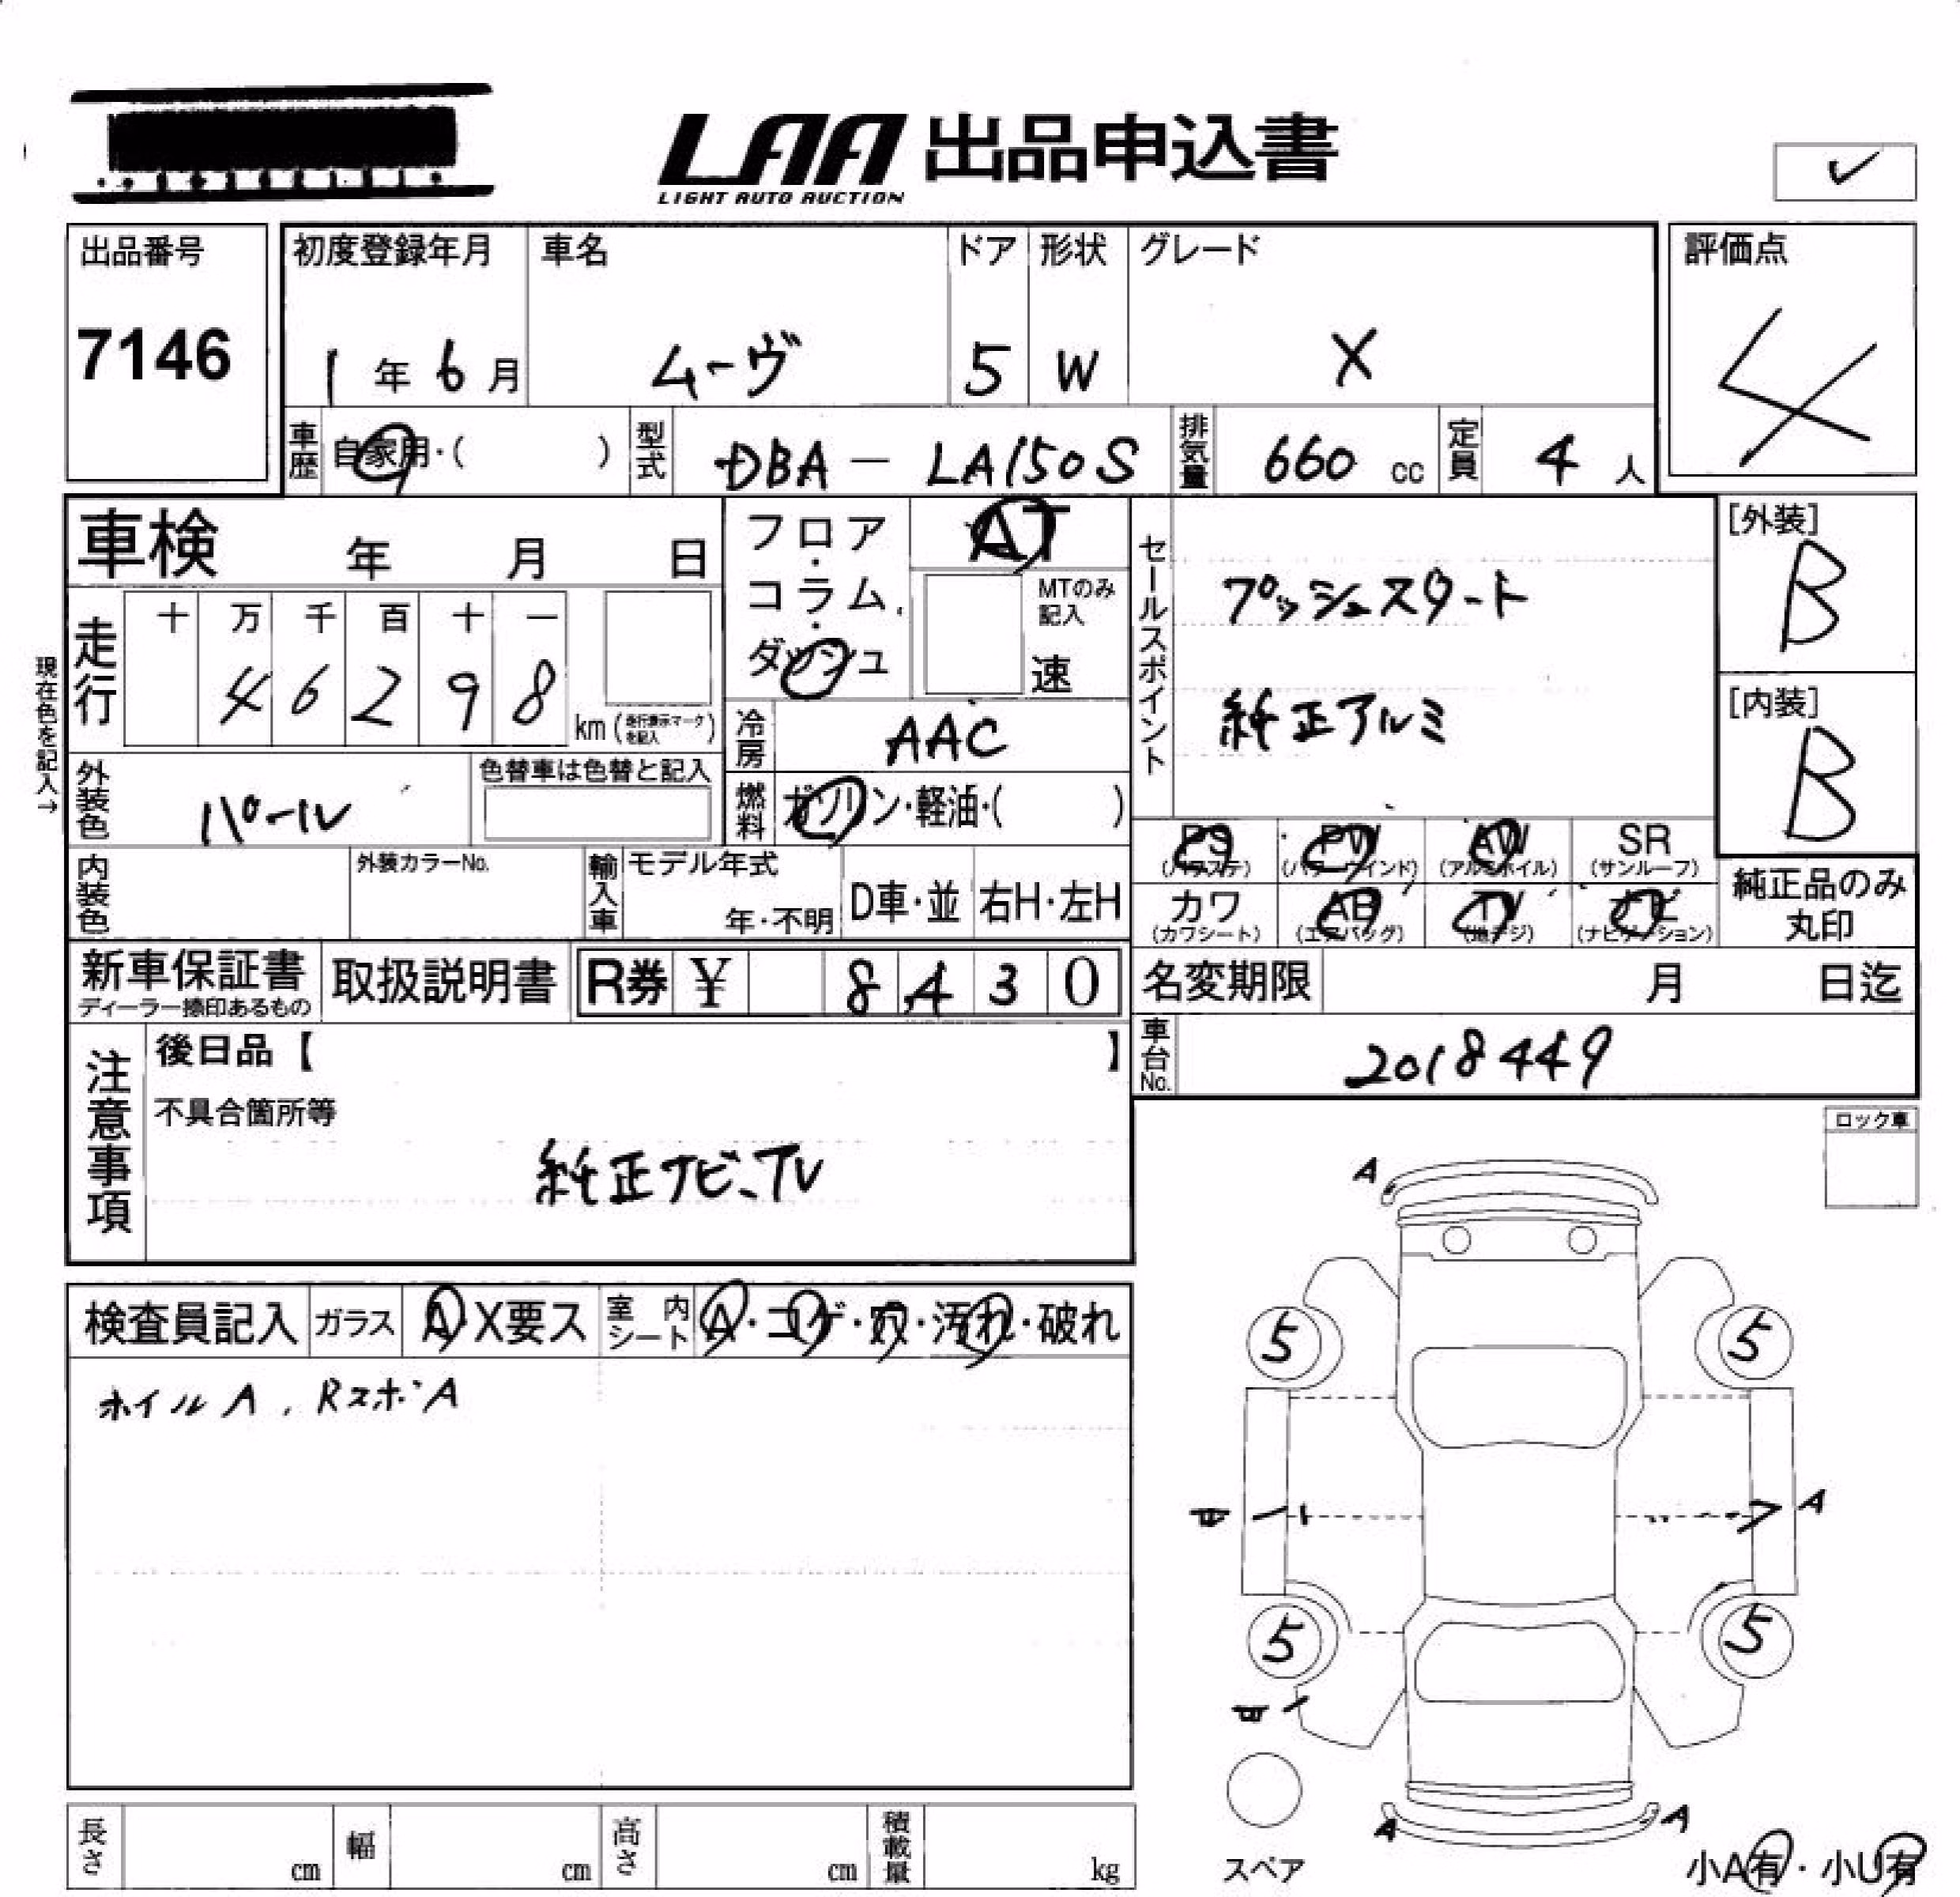 LAA 出品申込書
LIGHT AUTO AUCTION
✓
出品番号
7146
初度登録年月
1年6月
車名
ムーヴ
ドア
5
形状
W
グレード
X
評価点
4
車歴
自家用・( )
型式
DBA - LA150S
排気量
660 cc
定員
4 人
車検 年 月 日
フロア・コラム・ダッシュ
AT
MTのみ記入
速
セールスポイント
プッシュスタート
純正アルミ
[外装]
B
[内装]
B
現在色を記入→
走行
十 万 千 百 十 一
4 6 2 9 8
km (走行表示マークを記入)
冷房
AAC
外装色
パール
色替車は色替と記入
燃料
ガソリン・軽油・( )
PS (パワステ)
PW (パワーウインド)
AW (アルミホイル)
SR (サンルーフ)
カワ (カワシート)
AB (エアバッグ)
TV (地デジ)
ナビ (ナビゲーション)
純正品のみ丸印
内装色
外装カラーNo.
輸入車
モデル年式
年・不明
D車・並
右H・左H
新車保証書
ディーラー捺印あるもの
取扱説明書
R券 ¥ 8430
名変期限 月 日迄
車台No.
2018449
注意事項
後日品【 】
不具合箇所等
純正ナビ、TV
ロック車
検査員記入
ガラス
A・X要ス
室内シート
A・コゲ・穴・汚れ・破れ
ホイルA, RスポA
A
5 5
A
5 5
A A
スペア
小A有・小U有
長さ cm
幅 cm
高さ cm
積載量 kg